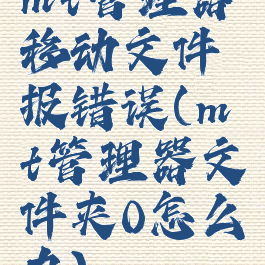 mt管理器
移动文件
报错误(m
t管理器文
件夹0怎么
办)